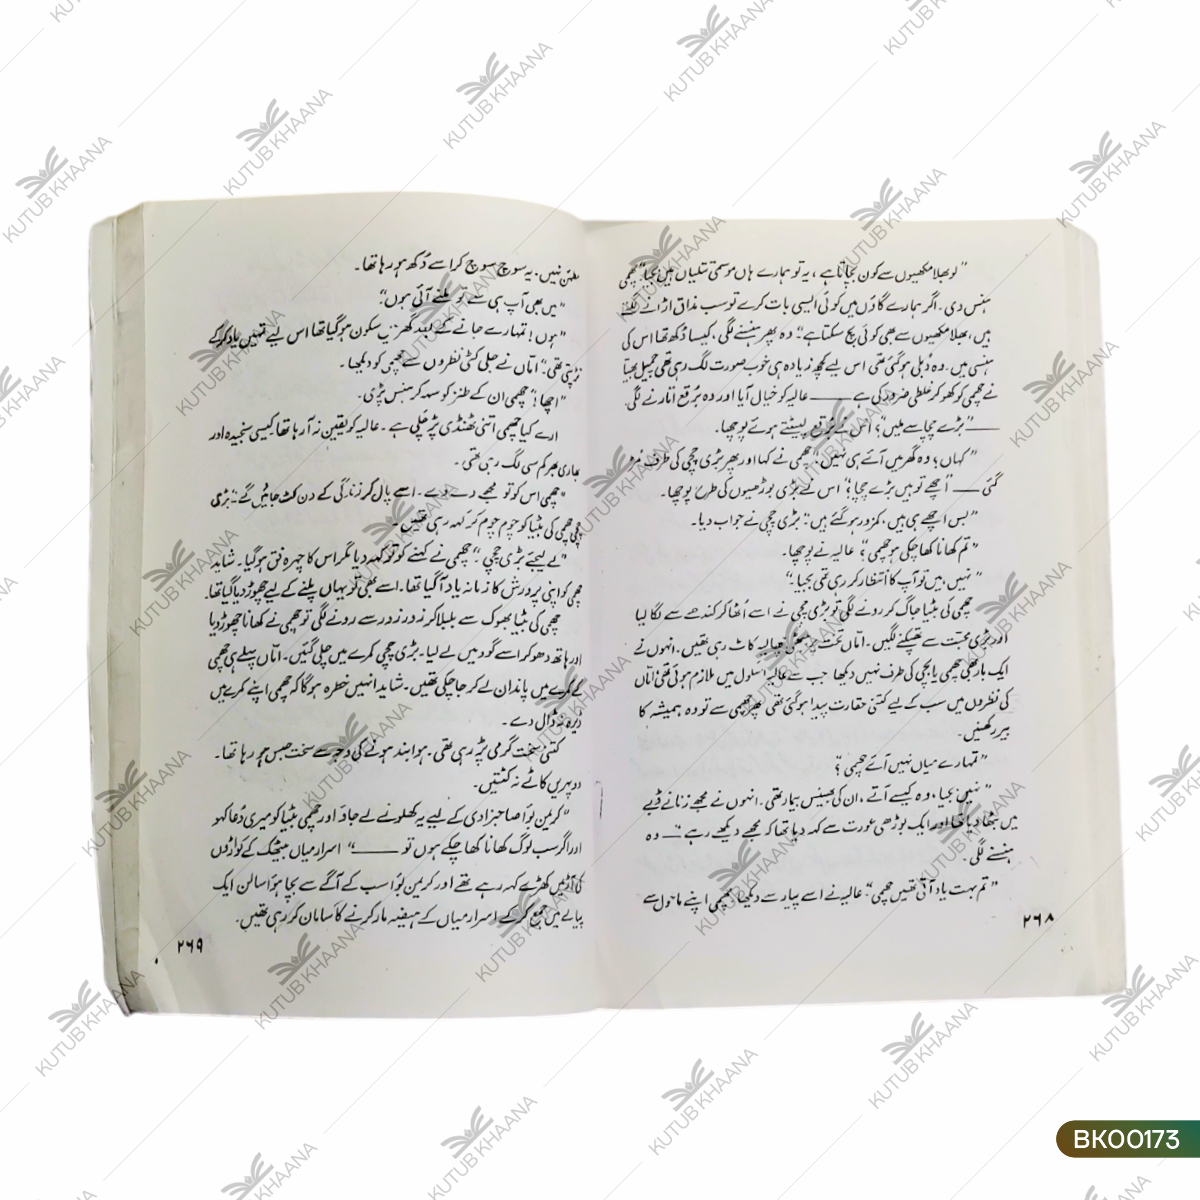 "لو بھلا مکھیوں سے کون بچاتا ہے، یہ تو ہمارے ہاں موسمی تتلیاں ہیں بجیا۔" چھمی
ہنس دی۔ اگر ہمارے گاؤں میں کوئی ایسی بات کرے تو سب مذاق اڑانے لگتے
ہیں، بھلا مکھیوں سے بھی کوئی بچ سکتا ہے"۔ وہ پھر ہنسنے لگی، کیسا دُکھ تھا اس کی
ہنسی میں۔ وہ دُبلی ہو گئی تھی اس لیے کچھ زیادہ ہی خوب صورت لگ رہی تھی جمیل بھیّا
نے چھمی کو کھو کر غلطی ضرور کی ہے ـــــ عالیہ کو خیال آیا اور وہ بُرقع اتارنے لگی
ـــــ"بڑے چچا سے ملیں"؟ اس نے بُرقع لپیٹتے ہوئے پوچھا۔
"کہاں؛ وہ گھر میں آئے ہی نہیں"۔ چھمی نے کہا اور پھر بڑی چچی کی طرف مڑ
گئی ـــــ "اچھے تو ہیں بڑے چچا؟" اس نے بڑی بوڑھیوں کی طرح پوچھا۔
"بس اچھے ہی ہیں، کمزور ہو گئے ہیں"۔ بڑی چچی نے جواب دیا۔
"تم کھانا کھا چکی ہو چھمی"؟ عالیہ نے پوچھا۔
"نہیں، میں تو آپ کا انتظار کر رہی تھی بجیا۔"
چھمی کی بٹیا جاگ کر رونے لگی تو بڑی چچی نے اسے اُٹھا کر کندھے سے لگا لیا
اور بڑی محبت سے تھپکنے لگیں۔ اماں تخت پر بیٹھی چھالیہ کاٹ رہی تھیں۔ انہوں نے
ایک بار بھی چھمی یا بچی کی طرف نہیں دیکھا جب سے عالیہ اسکول میں ملازم ہوئی تھی امّاں
کی نظروں میں سب کے لیے کتنی حقارت پیدا ہو گئی تھی پھر چھمی سے تو وہ ہمیشہ کا
بیر رکھتیں۔
"تمہارے میاں نہیں آئے چھمی؟
"نہیں بجیا، وہ کیسے آتے، ان کی بھینس بیمار تھی۔ انہوں نے مجھے زنانے ڈبے
میں بٹھا دیا تھا اور ایک بوڑھی عورت سے کہہ دیا تھا کہ مجھے دیکھتے رہے"ـــــ وہ
ہنسنے لگی۔
"تم بہت یاد آتی تھیں چھمی"۔ عالیہ نے اسے پیار سے دیکھا۔ چھمی اپنے ماحول سے
۲۶۸
مطمئن نہیں۔ یہ سوچ سوچ کر اسے دُکھ ہو رہا تھا۔
"میں بھی آپ ہی سے تو ملنے آئی ہوں"۔
"ہوں! تمہارے جانے کے بعد گھر میں سکون ہو گیا تھا اس لیے تمہیں یاد کر کے
تڑپتی تھی"۔ امّاں نے جلی کٹی نظروں سے چھمی کو دیکھا۔
"اچھا!" چھمی ان کے طنز کو سہہ کر ہنس پڑی۔
ارے کیا چھمی اتنی ٹھنڈی پڑ چکی ہے۔ عالیہ کو یقین نہ آ رہا تھا کیسی سنجیدہ اور
بھاری بھرکم سی لگ رہی تھی۔
"چھمی اس کو تو مجھے دے دے۔ اسے پال کر زندگی کے دن کٹ جائیں گے"۔ بڑی
چچی چھمی کی بٹیا کو چوم چوم کر کہہ رہی تھیں۔
"لے لیجئے بڑی چچی۔" چھمی نے کہنے کو تو کہہ دیا مگر اس کا چہرہ فق ہو گیا۔ شاید
چھمی کو اپنی پرورش کا زمانہ یاد آ گیا تھا۔ اسے بھی تو یہاں پلنے کے لیے چھوڑ دیا گیا تھا۔
چھمی کی بٹیا بھوک سے بلبلا کر زور زور سے رونے لگی تو چھمی نے کھانا چھوڑ دیا
اور ہاتھ دھو کر اسے گود میں لے لیا۔ بڑی چچی کمرے میں چلی گئیں۔ اماں پہلے ہی چھمی
کے کمرے میں پاندان لے کر جا چکی تھیں۔ شاید انہیں خطرہ ہو گا کہ چھمی اپنے کمرے میں
ڈیرہ نہ ڈال دے۔
کتنی سخت گرمی پڑ رہی تھی۔ ہوا بند ہونے کی وجہ سے سخت حبس ہو رہا تھا۔
دوپہریں کاٹے نہ کٹتیں۔
"کریمن بُوا صاحبزادی کے لیے یہ کھلونے لے جاؤ اور چھمی بٹیا کو میری دُعا کہو
اور اگر سب لوگ کھانا کھا چکے ہوں تو ـــــ" اسرار میاں بیٹھک کے کواڑوں
کی آڑ میں کھڑے کہہ رہے تھے اور کریمن بُوا سب کے آگے سے بچا ہوا سالن ایک
پیالے میں جمع کر کے اسرار میاں کے ہیضہ مار کرنے کا سامان کر رہی تھیں۔
۲۶۹
KUTUB KHAANA
BK00173